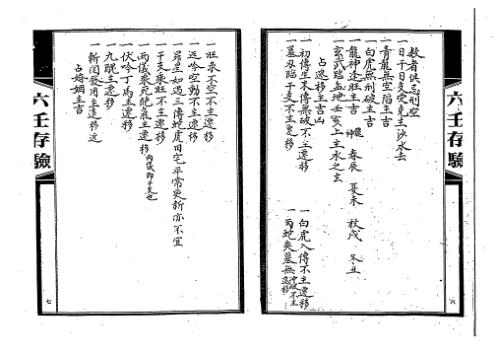 六壬存驗
數者俱忌刑空
一日干日支受克主沙水去
一青龍無空陷主吉
一白虎無刑破主吉
一龍神逢旺主吉 春辰 夏未 秋戌 冬丑
一玄武臨亥地壬亥上主水之玄
占遷移主吉凶
一初傳生末傳無破不主遷移
一墓及臨干支不主遷移
一白虎入傳不主遷移
一兩蛇夾墓無冲破不主遷移
六
一旺衆不空不主遷移
一返吟空動不主遷移
一若是如遇三傳蛇虎田宅平常更新亦不宜
一干支乘旺不主遷移
一兩儀乘死絶氣主遷移 兩儀即干支也
一伏吟丁馬主遷移
一九醜主遷移
一斬関發用主遷移逃
占婚姻主吉
六壬存驗
七